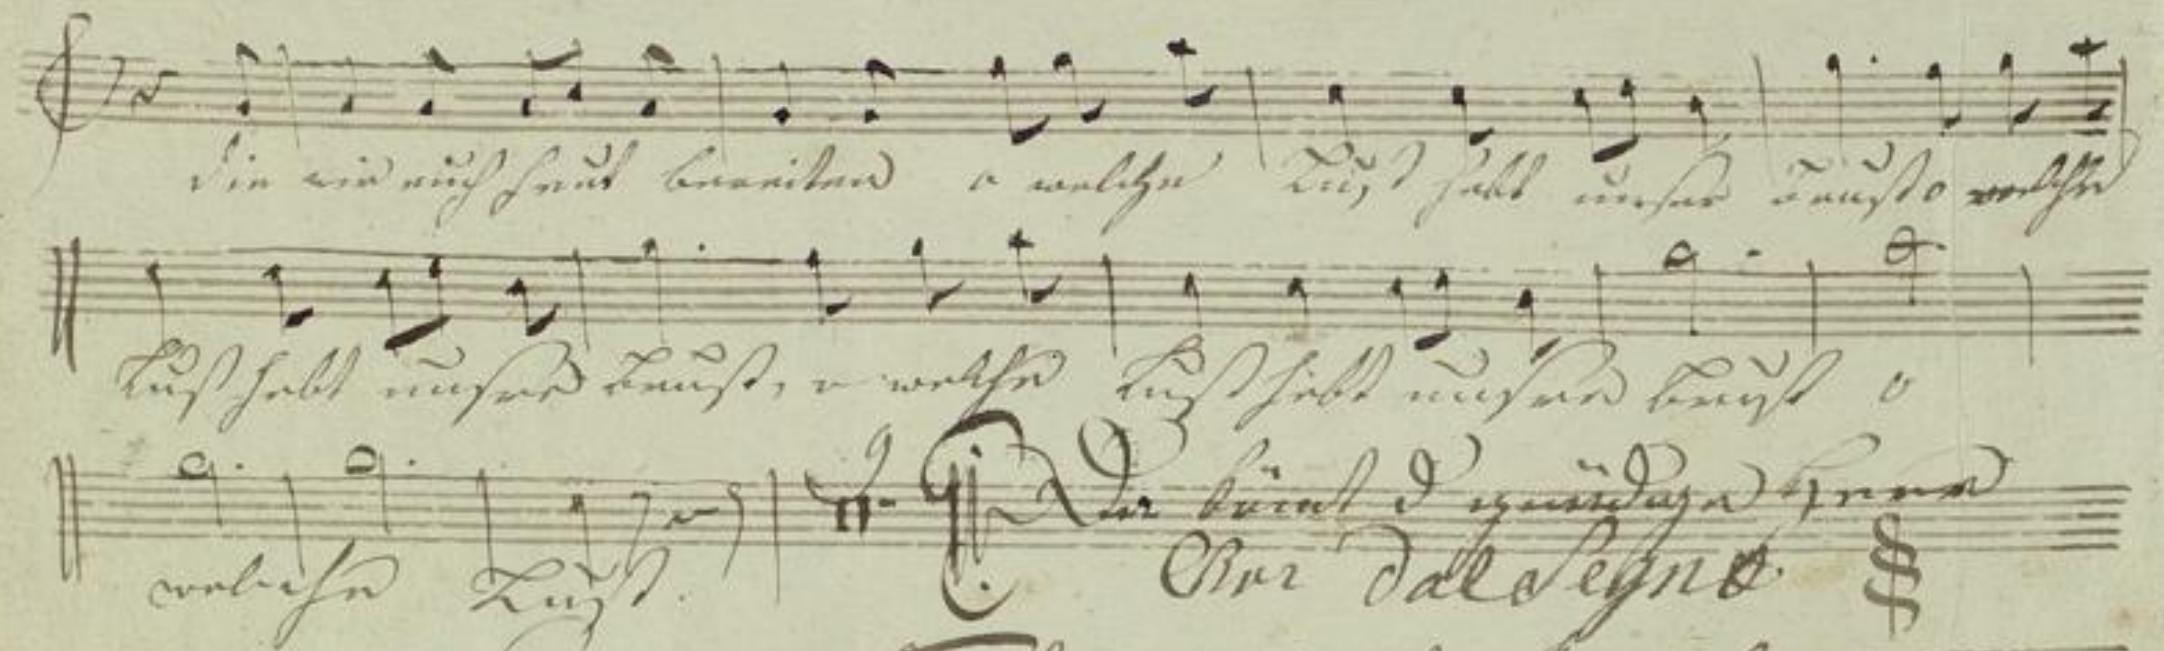 die wir euch heut bereiten o welche Lust hebt unsre Brust o welche
Lust hebt unsre Brust, o welche Lust hebt unsre Brust o
welche Lust.
9 Da kömt d gnädige Herr
Chor dal Segno.